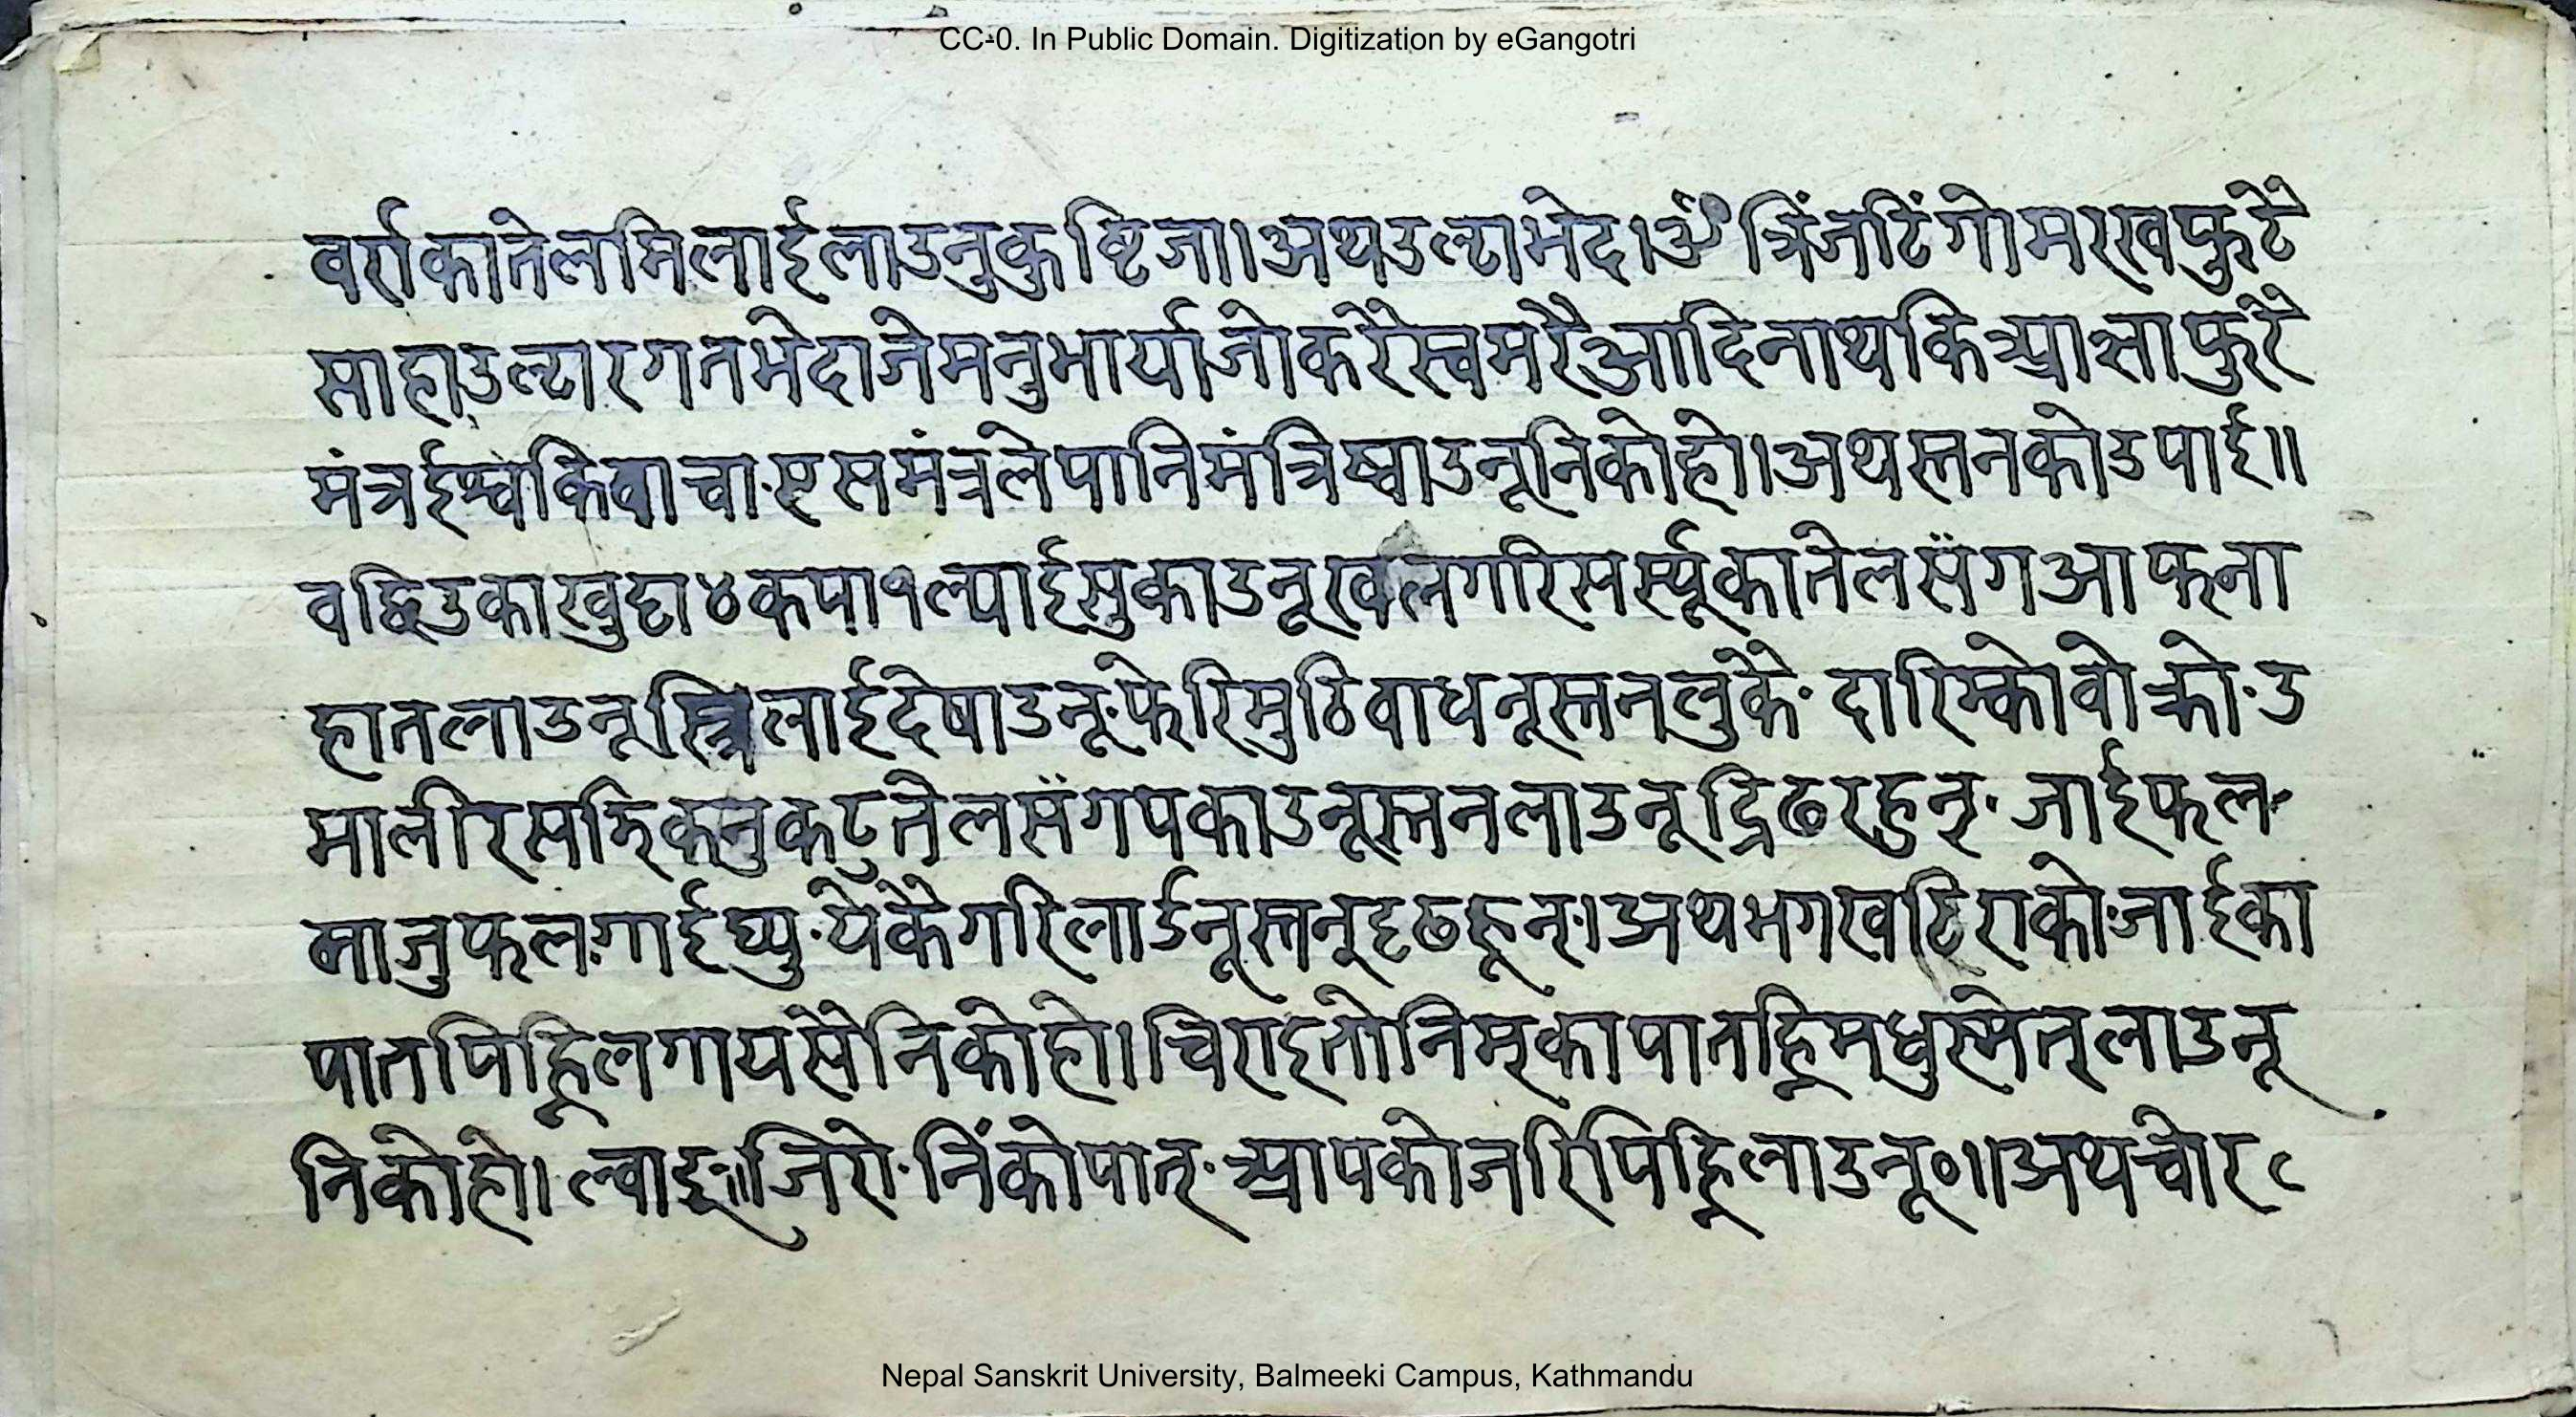 CC-0. In Public Domain. Digitization by eGangotri
वर्राकातेलमिलाईलाउनुकुष्टिजा।अथउल्टाभेद।ॐ त्रिंजटिंगोमररवफुटे
माहाउल्टारगतभेदाजेमनुभार्याजोकरेस्वमरैआदिनाथकि फुरे
मंत्रईश्वकिवाचा·एसमंत्रलेपानिमंत्रिष्वाउनूनिकोहो।अथस्तनकोउपाई॥
खुट्टा४कपा१ल्याईसुकाउनूखलगरिसर्स्यूकातेलसँगआफना
हातलाउनूस्त्रिलाईदेषाउनू·फेरिमुठिवाधनूस्तनलुकै·दारिम्कोवोक्रो·उ
मालीरसझिकनुकटुतेलसँगपकाउनूस्तनलाउनूद्रिढरहुन्·जाईफल·
माजुफल·गाईघ्यु·येकैगरिलाईनूस्तनदृढहून्।अथभगखटिराको·जाईका
पातपिह्निलगायसैनिकोहो।चिराइतोनिम्कापातह्निमधुस्मेत्लाउनू
निकोहो।ल्वाङ्॥जिरो·निंकोपात्· जरिपिह्निलाउनू०॥अथचोर
Nepal Sanskrit University, Balmeeki Campus, Kathmandu